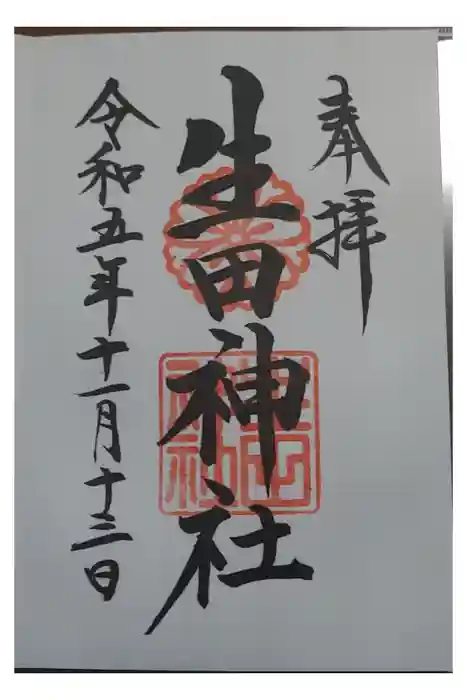 奉拝
生田神社
生田神社
令和五年十一月十三日